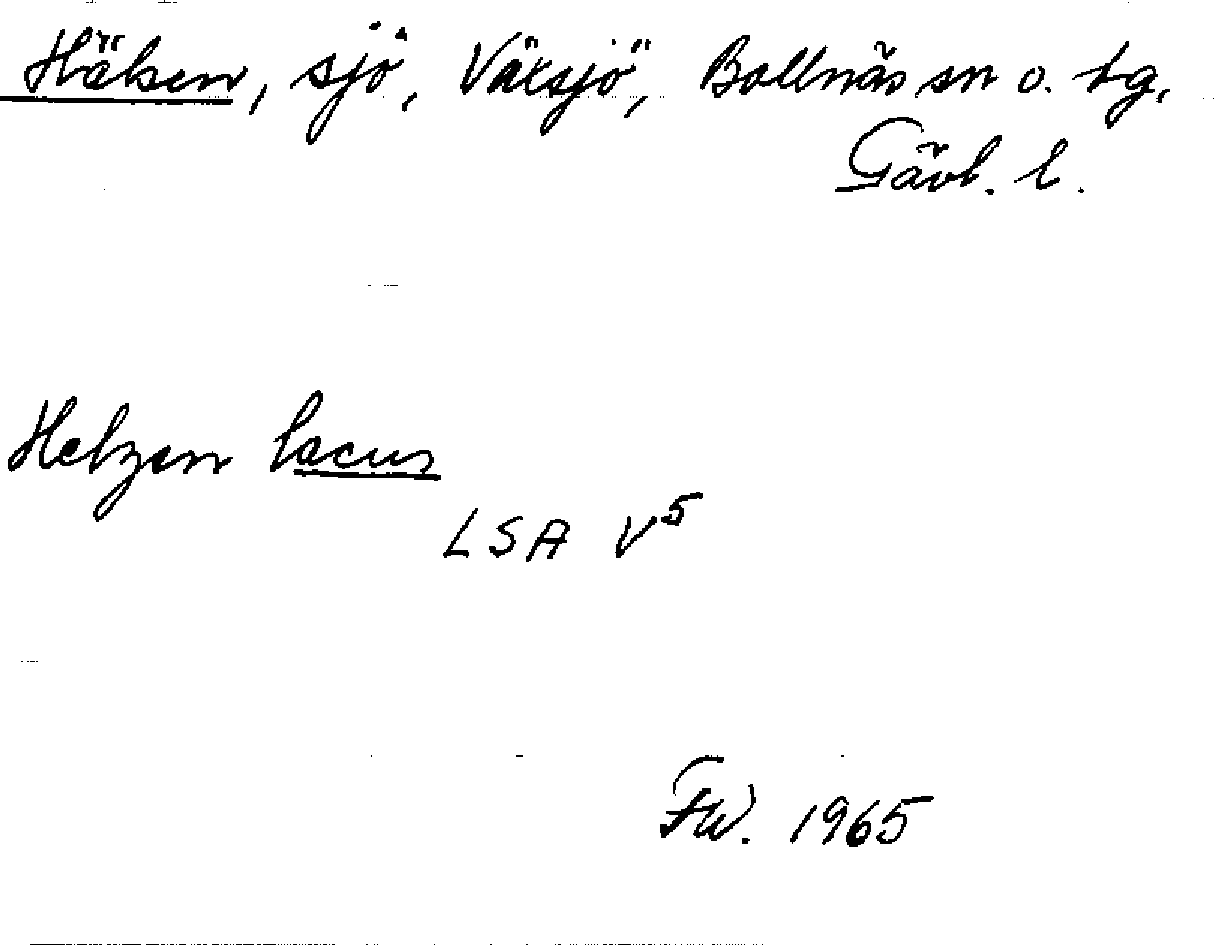 Hälsen, sjö, Växsjö, Bollnäs sn o. tg,
Gävl. l.
Helzen lacus
LSA V⁵
FW. 1965